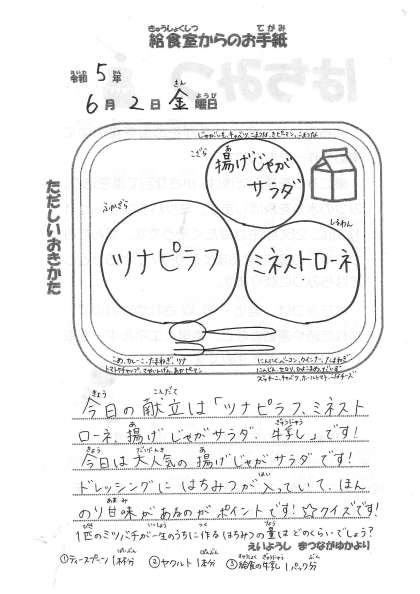 きゅうしょくしつ てがみ
給食室からのお手紙
令和 5年
6月2日金曜日
じゃがいも、キャベツ、こまつな、きピーマン、
こざら
揚げじゃが
サラダ
ふかざら
しるわん
ツナピラフ
ミネストローネ
ただしいおきかた
こめ、カレーこ、たまねぎ、ツナ
トマトケチャップ、さやいんげん、あかピーマン
にんにく、ベーコン、ウインナー、たまねぎ
にんじん、セロリ、ひよこまめ、だいず
ズッキーニ、キャベツ、ホールトマト、こなチーズ
今日の献立は「ツナピラフ、ミネスト
ローネ、揚げじゃがサラダ、牛乳」です!
今日は大人気の揚げじゃがサラダです!
ドレッシングにはちみつが入っていて、ほん
のり甘味があるのがポイントです!☆クイズです!
1匹のミツバチが一生のうちに作るはちみつの量はどのくらいでしょう?
えいようし まつながゆかより
①ティースプーン1杯分 ②ヤクルト1本分 ③給食の牛乳1パック分